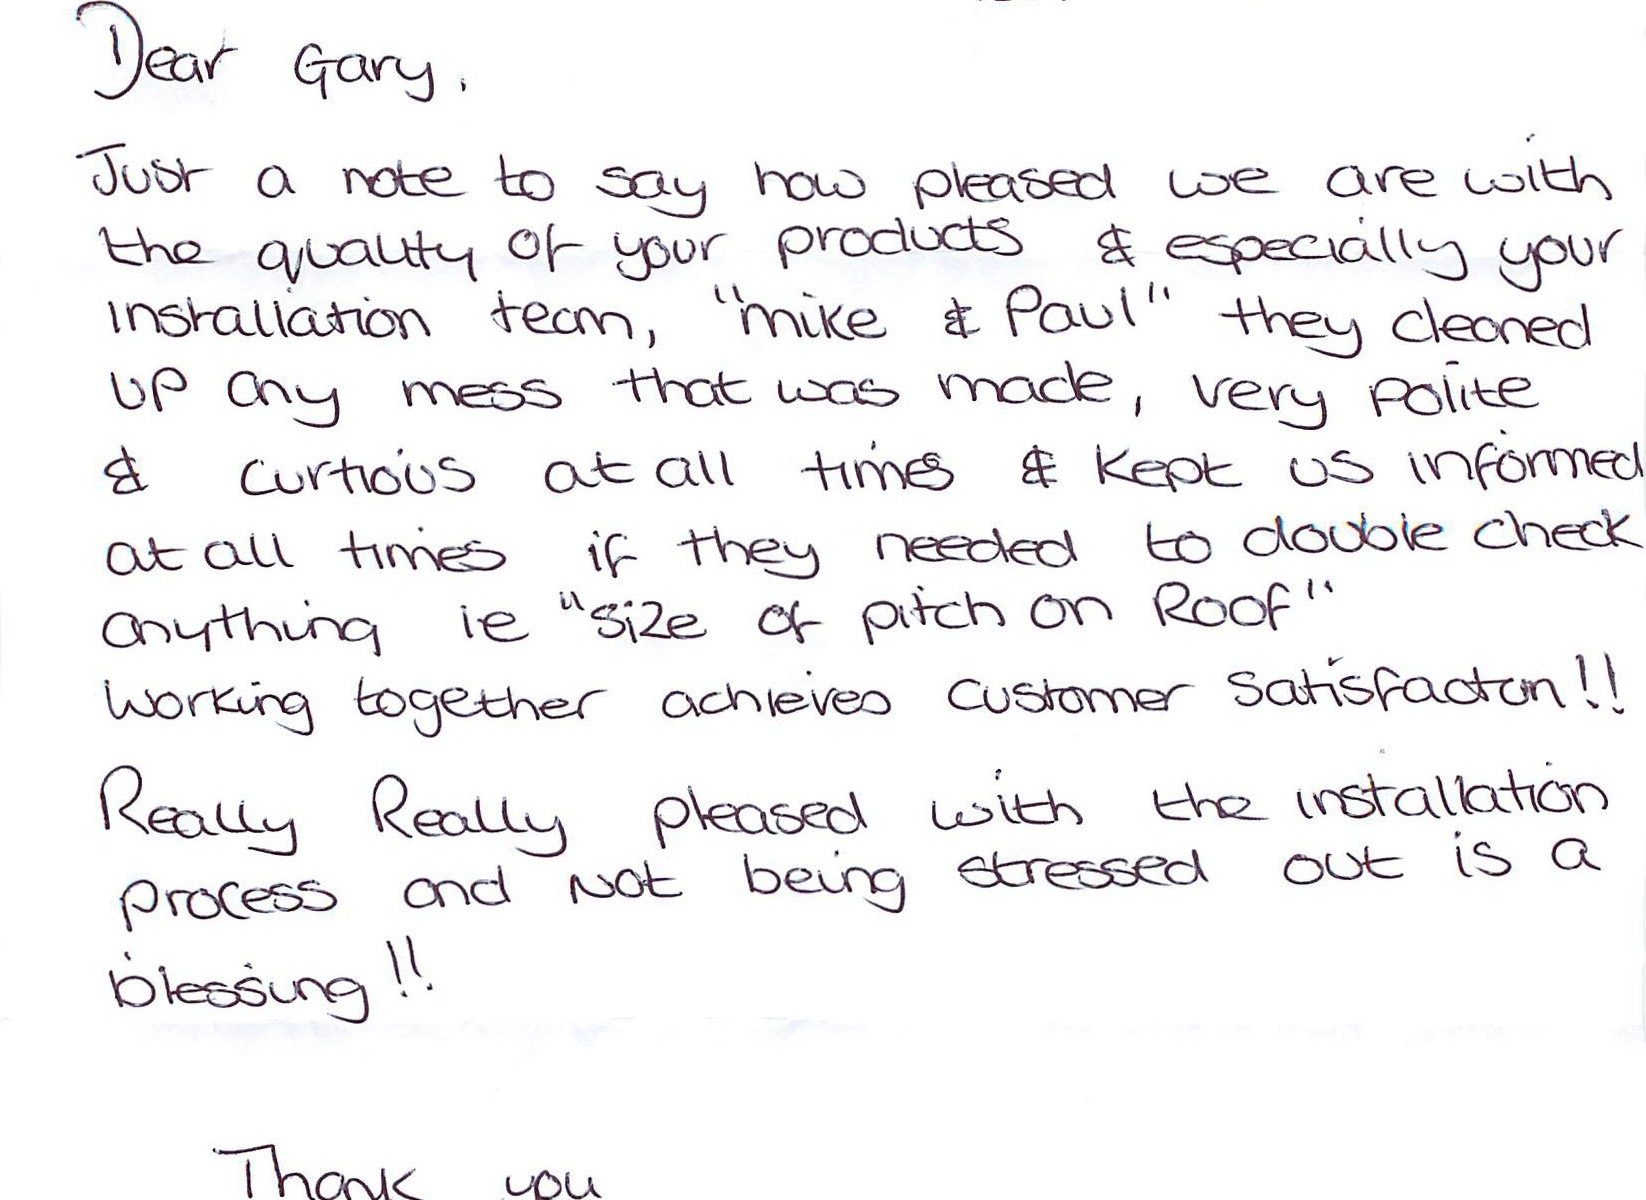 Dear Gary,
Just a note to say how pleased we are with
the quality of your products & especially your
installation team, "mike & Paul" they cleaned
up any mess that was made, very polite
& curtious at all times & kept us informed
at all times if they needed to double check
anything ie "size of pitch on Roof"
working together achieves customer satisfacton!!
Really Really pleased with the installation
process and not being stressed out is a
blessing!!
Thank you